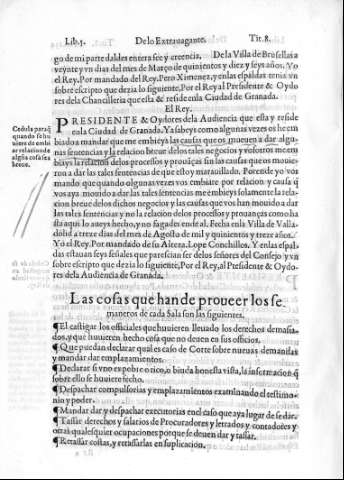 Lib.5. De lo Extrauagante. Tit.8.
go de mi parte daldes entera fee y creencia. De la Villa de Brusellas a
veynte y vn dias del mes de Março de quinientos y diez y seys años. Yo
el Rey. Por mandado del Rey. Pero Ximenez, y en las espaldas tenia vn
sobre escripto que dezia lo siguiente. Por el Rey al Presidente & Oydo
res dela Chancilleria que esta & reside en la Ciudad de Granada.
El Rey.
PRESIDENTE & Oydores dela Audiencia que esta y reside
en la Ciudad de Granada. Ya sabeys como algunas vezes os he em
biado a mandar que me embieys las causas que os mueuen a dar algu-
nas sentencias y la relacion breue delos tales negocios y vosotros me em
biays la relacion delos processos y prouãças sin las causas que os mouie
ron a dar las tales sentencias de que estoy marauillado. Por ende yo vos
mando que quando algunas vezes vos embiare por relacion y causa q̃
vos aya mouido a dar las tales sentencias me embieys solamente la rela
cion breue delos dichos negocios y las causas que vos han mouido a dar
las tales sentencias y no la relacion delos processos y prouanças como ha
sta aqui lo aueys hecho, y no fagades ende al. Fecha en la Villa de Valla
dolid a treze dias del mes de Agosto de mil y quinientos y treze años.
Yo el Rey. Por mandado de su Alteza. Lope Conchillos. Y en las espal
das estauan seys señales que parescian ser delos señores del Consejo y vn
sobre escripto que dezia lo siguiente, Por el Rey, al Presidente & Oydo
res dela Audiencia de Granada.
Cedula para q̃
quando se hu
uiere de embi
ar relacion de
algũa cosa sea
breue.
Las cosas que han de proueer los se
manéros de cada Sala son las siguientes.
¶ El castigar los officiales que huuieren lleuado los derechos demasia-
dos, y que huuieren hecho cosa que no deuen en sus officios.
¶ Que puedan declarar qual es caso de Corte sobre nueuas demandas
y mandar dar emplazamientos.
¶ Declarar si vno es pobre o rico, o biuda honesta vista, la informacion q̃
sobre ello se huuiere fecho.
¶ Despachar compulsorias y emplazamientos examinando el testimo-
nio y poder.
¶ Mandar dar y despachar executorias en el caso que aya lugar de se dar.
¶ Tassar derechos y salarios de Procuradores y letrados y contadores y
otras qualesquier ocupaciones porque se deuen dar y tassar.
¶ Retassar costas, y retassarlas en suplicacion.